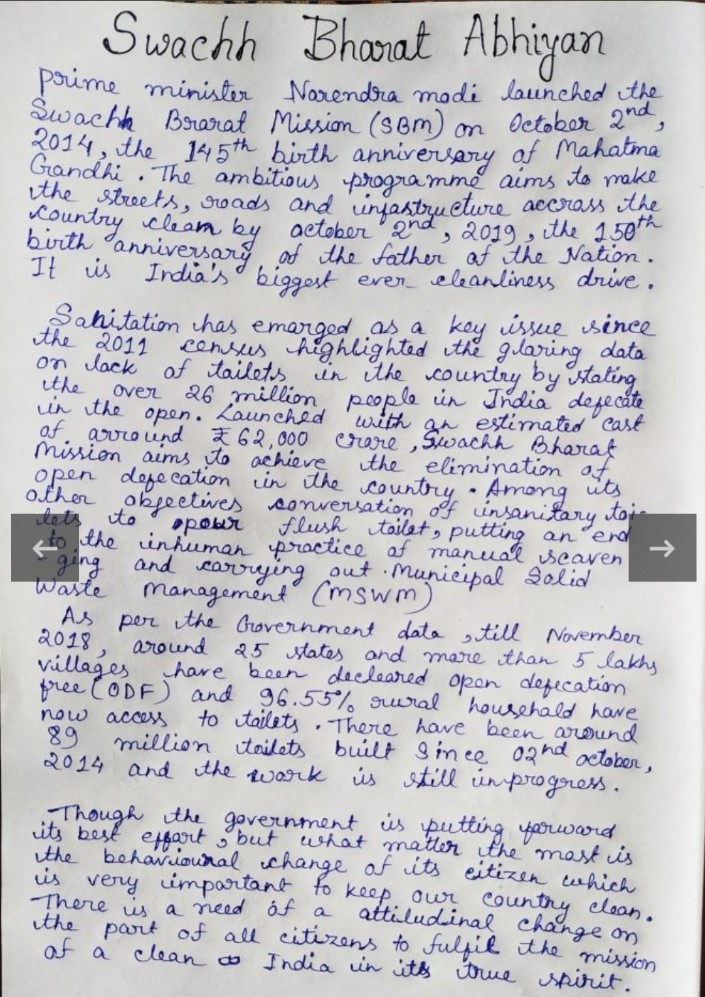 Swachh Bharat Abhiyan
prime minister Narendra modi launched the
Swachh Brarat Mission (SBM) on October 2nd,
2014, the 145th birth anniversary of Mahatma
Gandhi. The ambitious programme aims to make
the streets, roads and infastructure accrass the
country clean by october 2nd, 2019, the 150th
birth anniversary of the father of the Nation.
It is India's biggest ever cleanliness drive.
Sanitation has emarged as a key issue since
the 2011 census highlighted the glaring data
on lack of tailets in the country by stating
the over 26 million people in India defecate
in the open. Launched with an estimated cast
of arround ₹62,000 crore, Swachh Bharat
Mission aims to achieve the elimination of
open defecation in the country. Among its
other objectives conversation of insanitary toi-
lets to pour flush toilet, putting an end
to the inhuman practice of manual scaven
-ging and carrying out Municipal Solid
Waste Management (MSWM)
As per the Government data, till November
2018, around 25 states and more than 5 lakhs
villages have been decleared open defication
free (ODF) and 96.55% rural household have
now access to toilets. There have been around
89 million toilets built Since 02nd october,
2014 and the work is still inprogress.
Though the government is putting forward
its best effort, but what matter the most is
the behavioural change of its citizen which
is very important to keep our country clean.
There is a need of a attiludinal change on
the part of all citizens to fulfil the mission
of a clean India in its true spirit.